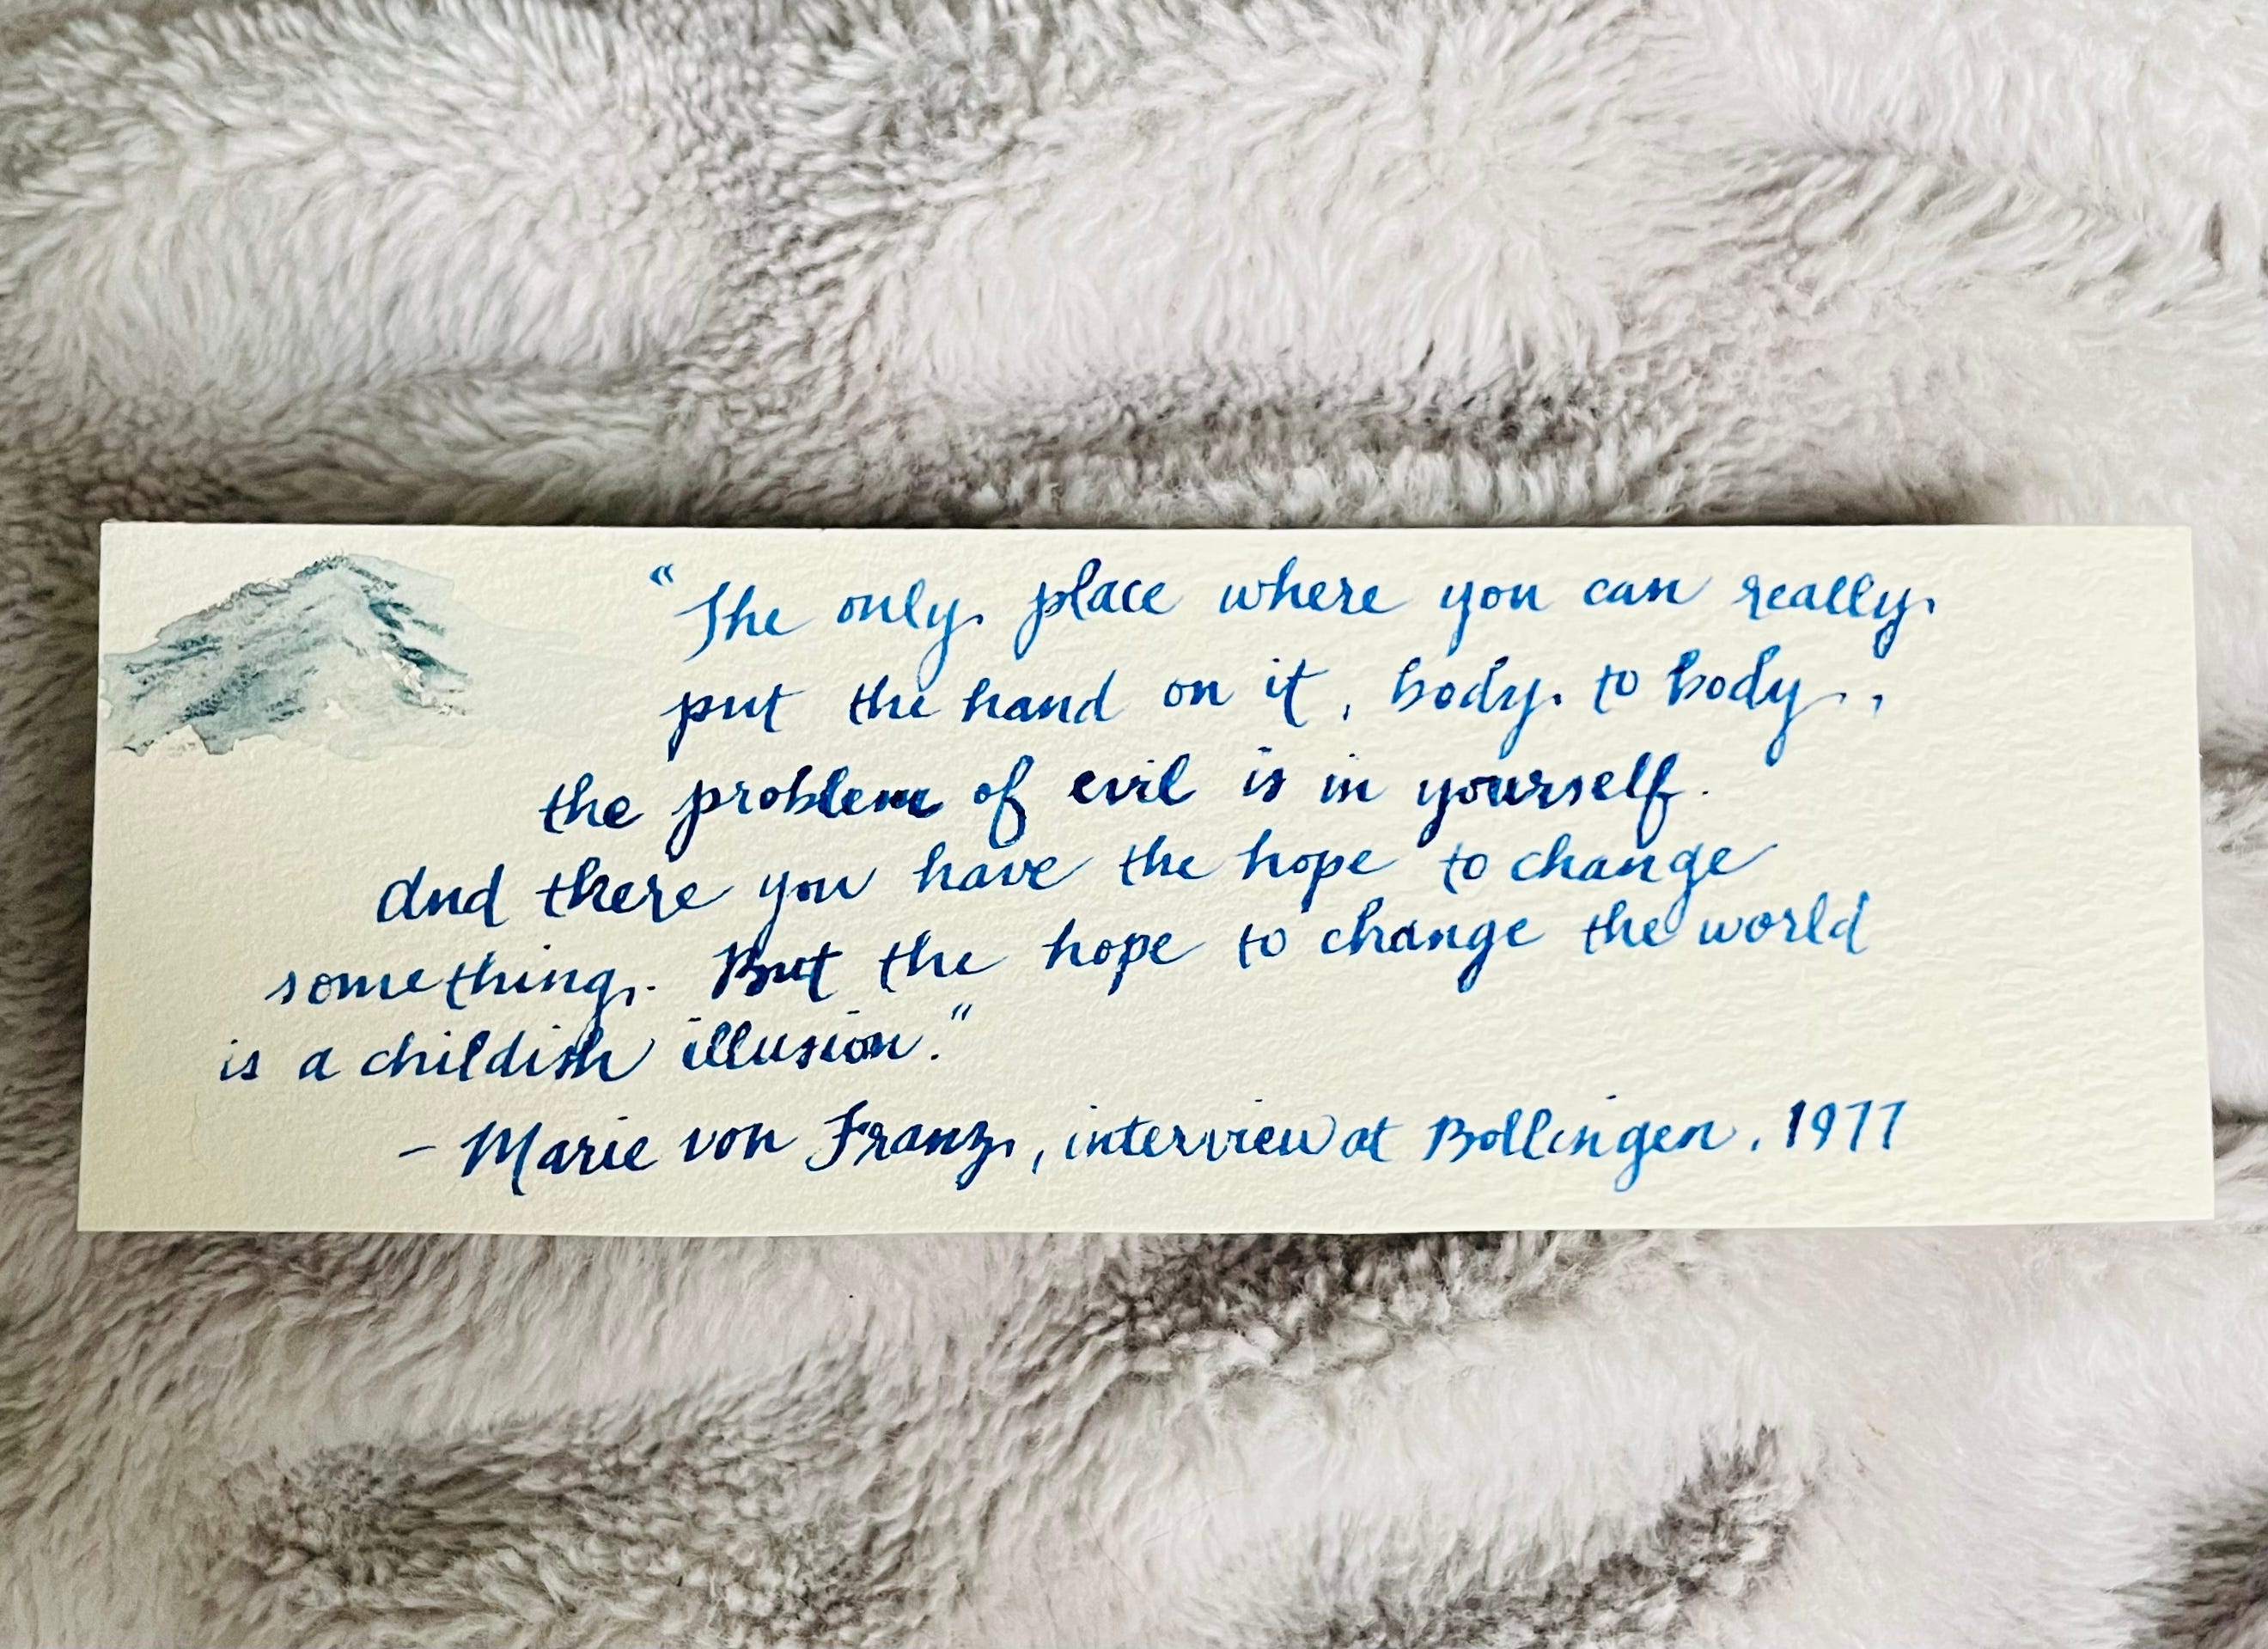 "The only place where you can really
put the hand on it, body to body,
the problem of evil is in yourself.
And there you have the hope to change
something. But the hope to change the world
is a childish illusion."
- Marie von Franz, interview at Bollingen, 1977